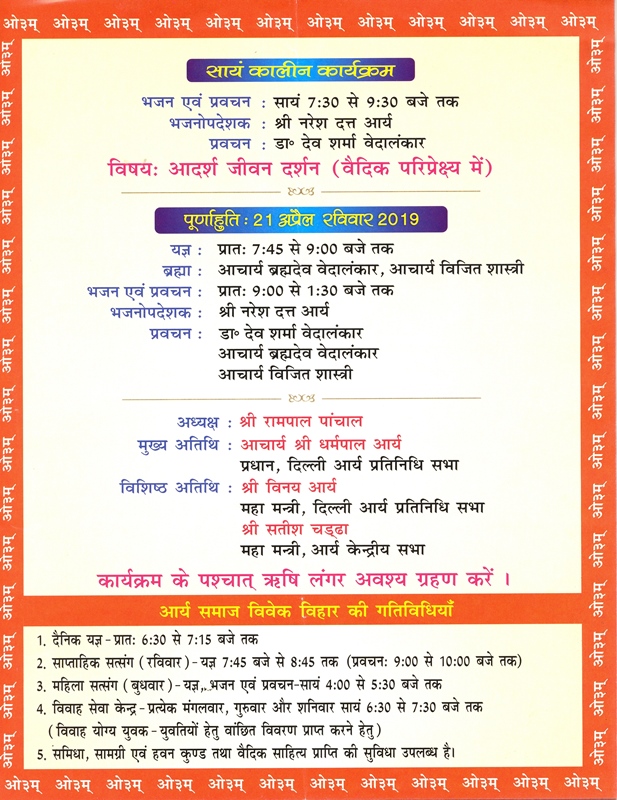 ओ३म् ओ३म् ओ३म् ओ३म् ओ३म् ओ३म् ओ३म् ओ३म् ओ३म् ओ३म् ओ३म् ओ३म्
सायं कालीन कार्यक्रम
भजन एवं प्रवचन : सायं 7:30 से 9:30 बजे तक
भजनोपदेशक : श्री नरेश दत्त आर्य
प्रवचन : डा॰ देव शर्मा वेदालंकार
विषयः आदर्श जीवन दर्शन (वैदिक परिप्रेक्ष्य में)
पूर्णाहुति : 21 अप्रैल रविवार 2019
यज्ञ : प्रातः 7:45 से 9:00 बजे तक
ब्रह्मा : आचार्य ब्रह्मदेव वेदालंकार, आचार्य विजित शास्त्री
भजन एवं प्रवचन : प्रातः 9:00 से 1:30 बजे तक
भजनोपदेशक : श्री नरेश दत्त आर्य
प्रवचन : डा॰ देव शर्मा वेदालंकार
आचार्य ब्रह्मदेव वेदालंकार
आचार्य विजित शास्त्री
अध्यक्ष : श्री रामपाल पांचाल
मुख्य अतिथि : आचार्य श्री धर्मपाल आर्य
प्रधान, दिल्ली आर्य प्रतिनिधि सभा
विशिष्ठ अतिथि : श्री विनय आर्य
महा मन्त्री, दिल्ली आर्य प्रतिनिधि सभा
श्री सतीश चड्ढा
महा मन्त्री, आर्य केन्द्रीय सभा
कार्यक्रम के पश्चात् ऋषि लंगर अवश्य ग्रहण करें ।
आर्य समाज विवेक विहार की गतिविधियाँ
1. दैनिक यज्ञ - प्रातः 6:30 से 7:15 बजे तक
2. साप्ताहिक सत्संग (रविवार) - यज्ञ 7:45 बजे से 8:45 तक (प्रवचनः 9:00 से 10:00 बजे तक)
3. महिला सत्संग (बुधवार) - यज्ञ, भजन एवं प्रवचन-सायं 4:00 से 5:30 बजे तक
4. विवाह सेवा केन्द्र - प्रत्येक मंगलवार, गुरुवार और शनिवार सायं 6:30 से 7:30 बजे तक
(विवाह योग्य युवक - युवतियों हेतु वांछित विवरण प्राप्त करने हेतु)
5. समिधा, सामग्री एवं हवन कुण्ड तथा वैदिक साहित्य प्राप्ति की सुविधा उपलब्ध है।
ओ३म् ओ३म् ओ३म् ओ३म् ओ३म् ओ३म् ओ३म् ओ३म् ओ३म् ओ३म् ओ३म् ओ३म्